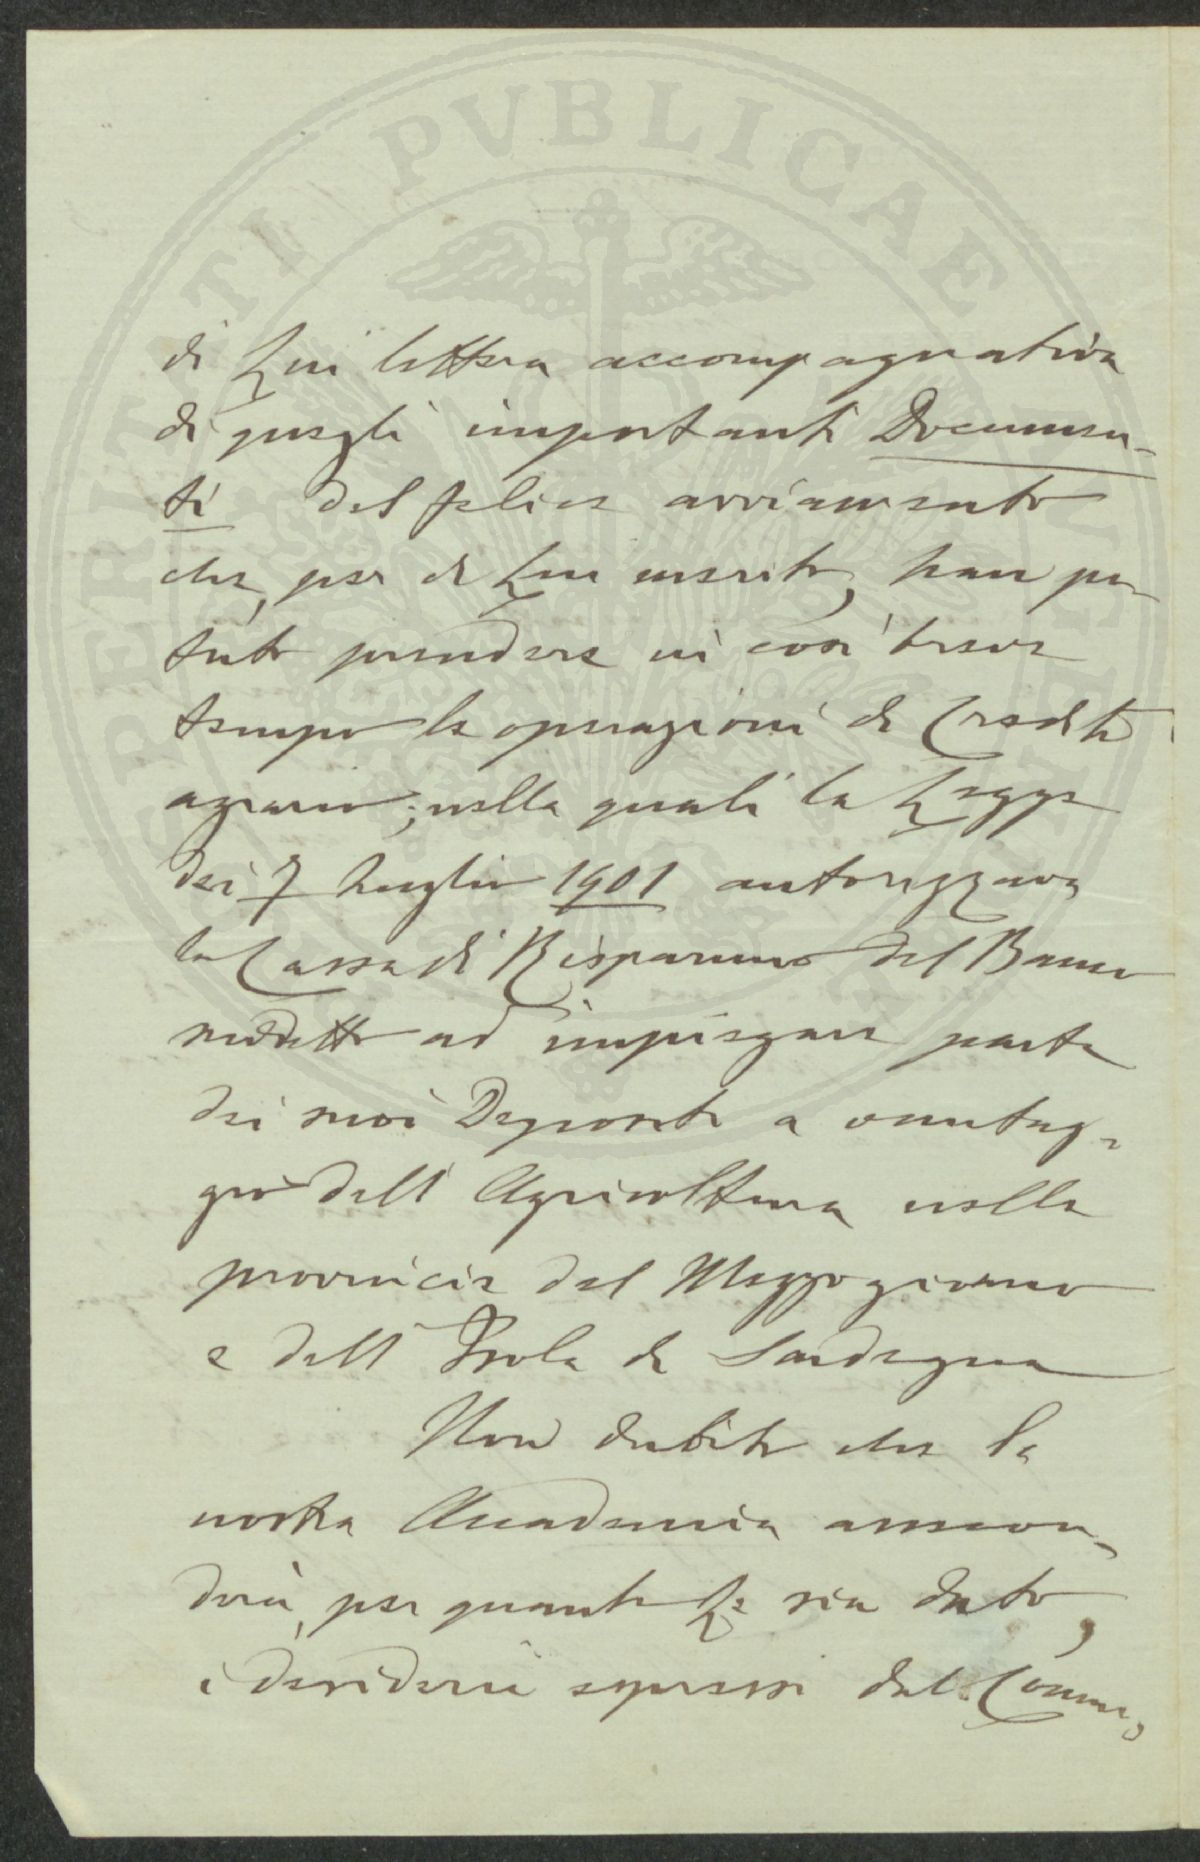 PERITATI PVBLICAE AVGEN
di Lui lettera accompagnativa
di quegli importanti Documen-
ti del felice avviamento
che, per di Lui merito, han po-
tuto prendere in così breve
tempo le operazioni di Credito
agrario; nelle quali la Legge
dei 7 Luglio 1901 autorizzava
la Cassa di Risparmio del Banco
suddetto ad impiegare parte
dei suoi Depositi a vantag-
gio dell'Agricoltura nelle
provincie del Mezzogiorno
e dell'Isola di Sardegna
Non dubito che la
nostra Accademia assecon-
derà, per quanto Le sia dato,
i desiderii espressi dal Comm.